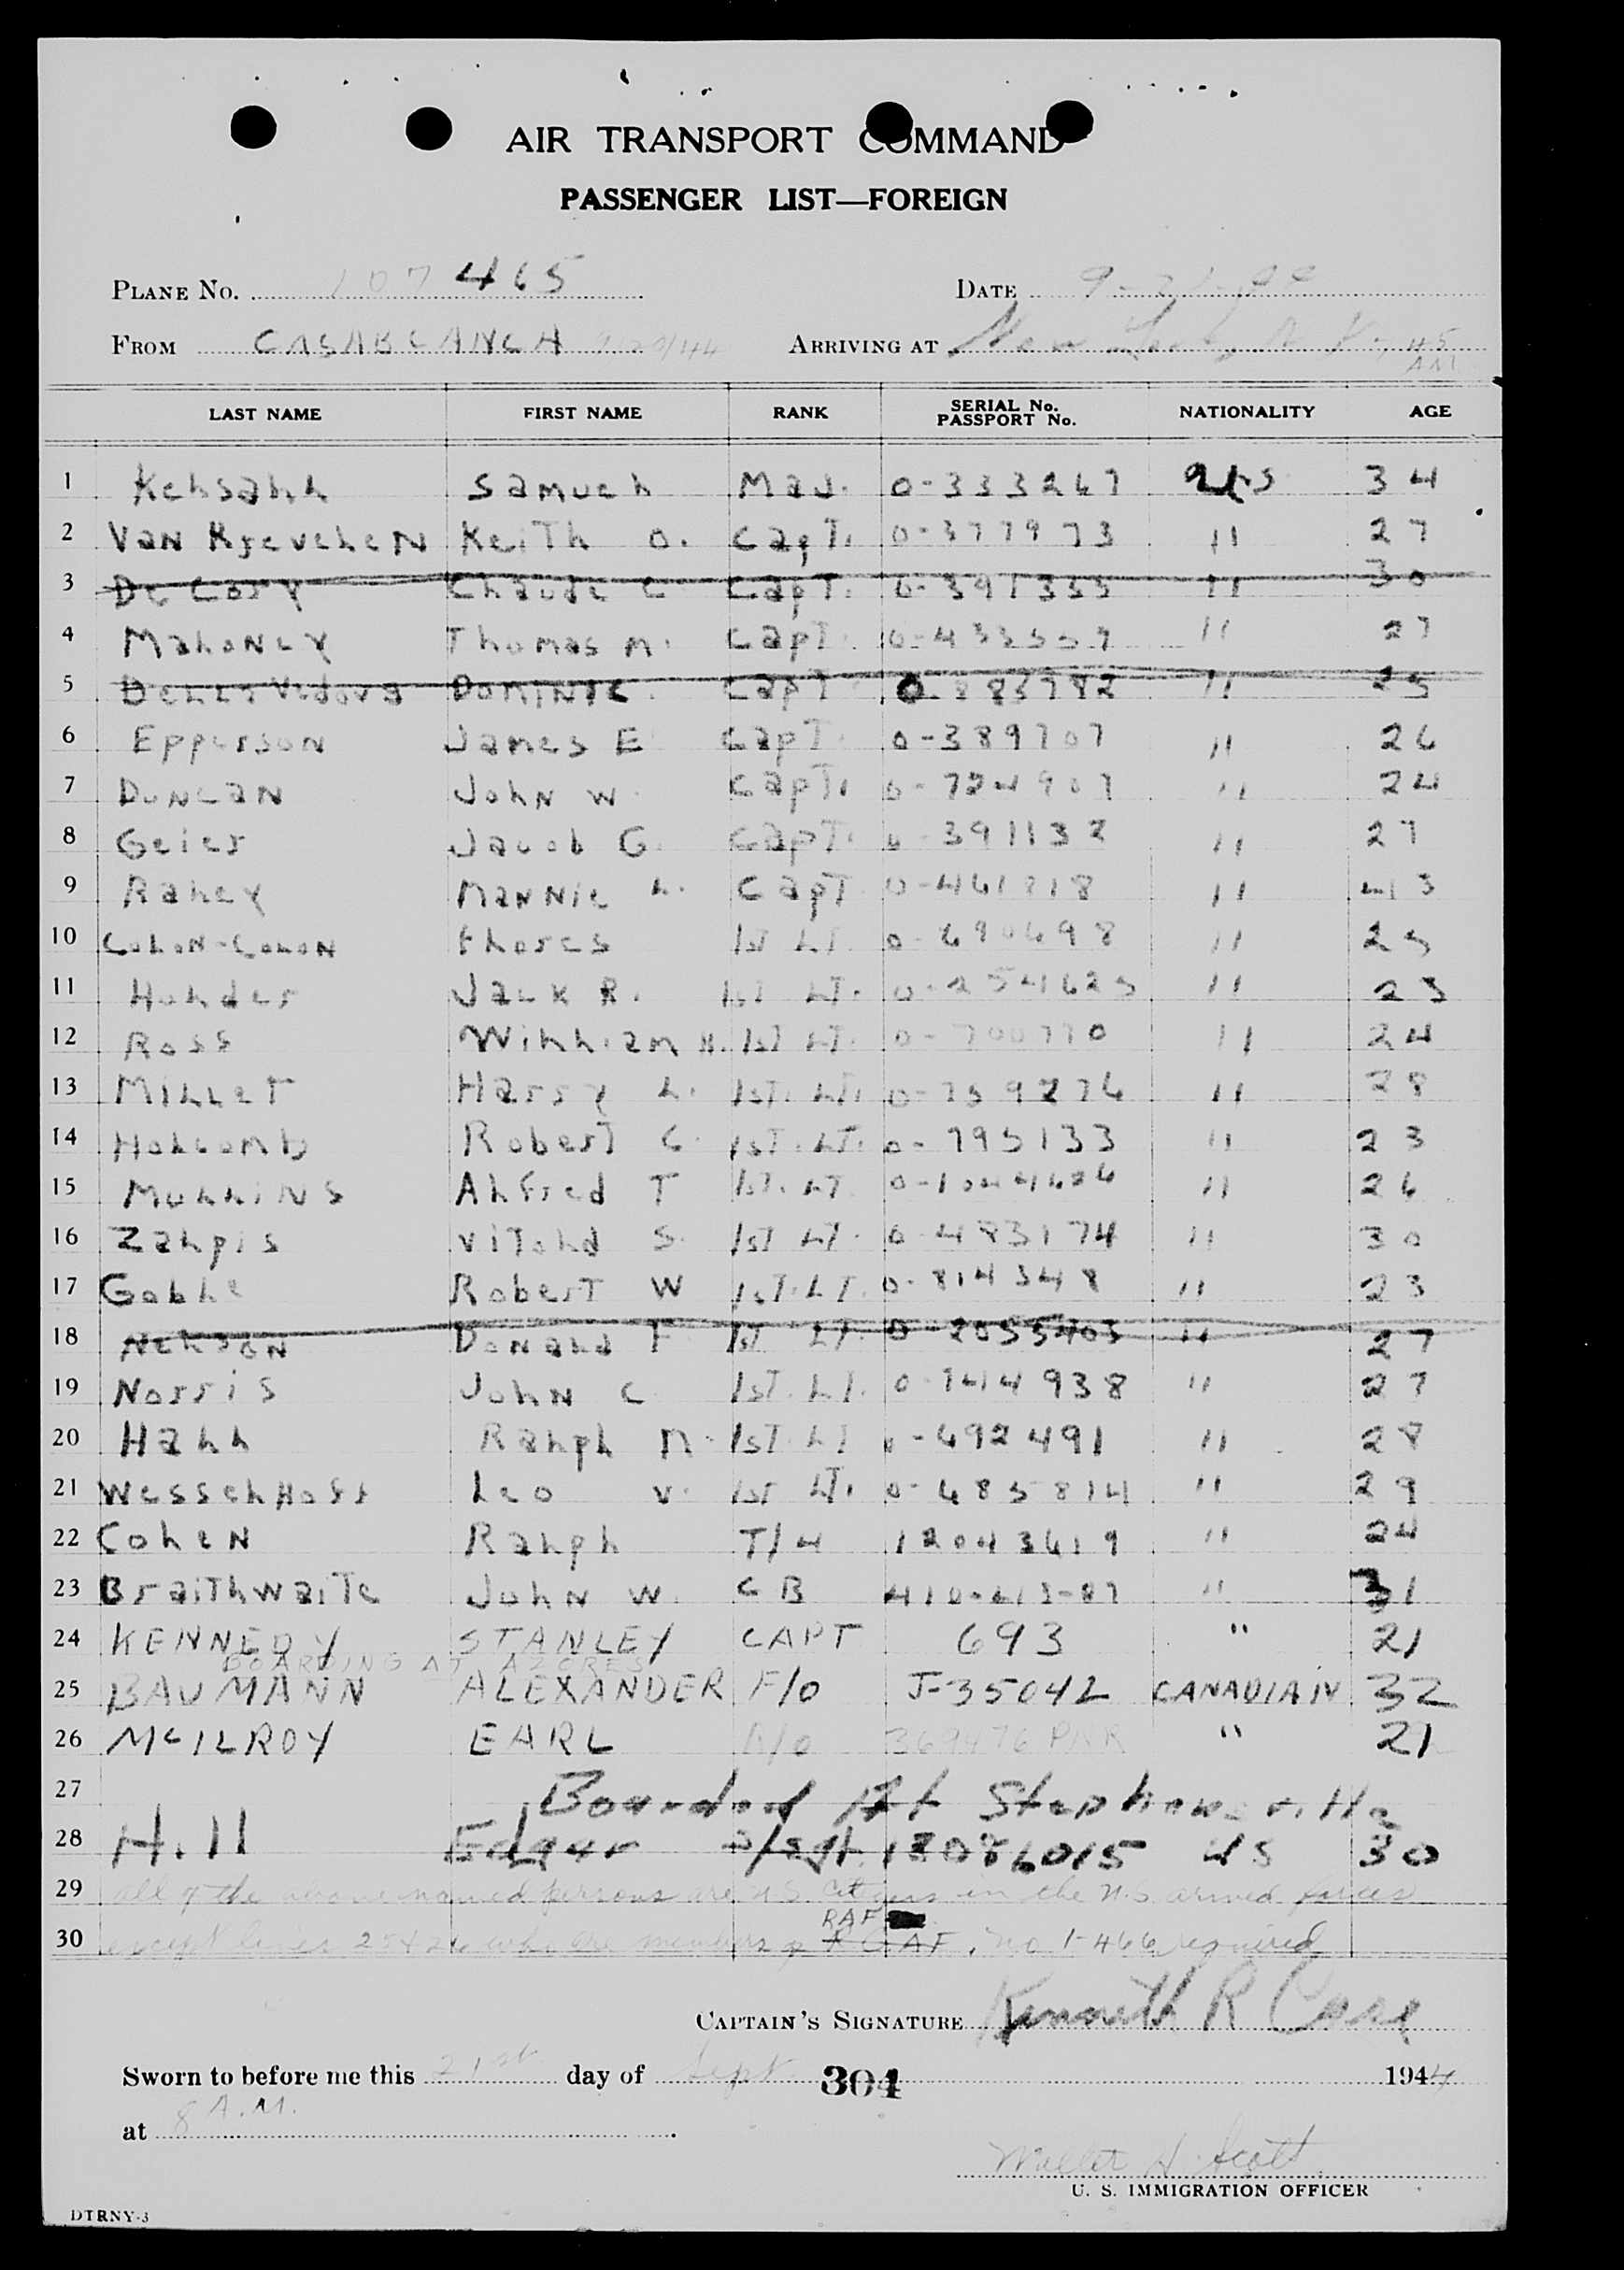 AIR TRANSPORT COMMAND
PASSENGER LIST—FOREIGN
PLANE No. 107 465 DATE 9-21-44
FROM CASABLANCA 9/20/44 ARRIVING AT New York, N.Y.
LAST NAME FIRST NAME RANK SERIAL No. PASSPORT No. NATIONALITY AGE
1 Samuel Maj. 0-333267 US 34
2 Keith O. Capt. 0-377973 " 27
3 De Cosy Claude C Capt. 0-391355 " 30
4 Mahoney Thomas M. Capt. " 27
5 Della Vedova Dominic Capt. 0-885782 " 25
6 Epperson James E Capt. 0-389707 " 26
7 Duncan John W. Capt. 0-724907 " 24
8 Geier Jacob G. Capt. 0-391132 " 27
9 Raley Mannie L. Capt " 43
10 Colon-Colon 1st Lt. 0-690698 " 25
11 Holder Jack R. 1st Lt. " 23
12 Ross William H. 1st Lt. 0-700770 " 24
13 Millet Harry L. 1st. Lt. 0-759276 " 28
14 Holcomb Robert C. 1st. Lt. 0-795133 " 23
15 Mullins Alfred T 1st. Lt " 26
16 Zalpis Vitold S. 1st Lt. 0-483174 " 30
17 Goble Robert W 1st. Lt. 0-814348 " 23
18 Nelson Donald F 1st Lt. 0-2055403 " 27
19 Norris John C 1st. Lt. 0-744938 " 27
20 Hall Ralph M. 1st. Lt 0-692491 " 28
21 Wesselhoft Leo V. 1st Lt. 0-685814 " 29
22 Cohen Ralph T/4 12043619 " 24
23 Braithwaite John W. CB " 31
24 KENNEDY STANLEY CAPT 693 " 21
BOARDING AT AZORES
25 BAUMANN ALEXANDER F/O J-35042 CANADIAN 32
26 McILROY EARL " 21
27 Boarded At Stephenville
28 Hill Edgar S/Sgt. 18086015 US 30
29 all of the above named persons are U.S. Citizens in the U.S. armed forces
RAF
30 except lines 25 & 26 who are members of RCAF. No I-466 required
CAPTAIN'S SIGNATURE Kenneth R Case
Sworn to before me this 21st day of Sept 304 1944
at 8 A.M.
H. Scott
U. S. IMMIGRATION OFFICER
DTRNY-3